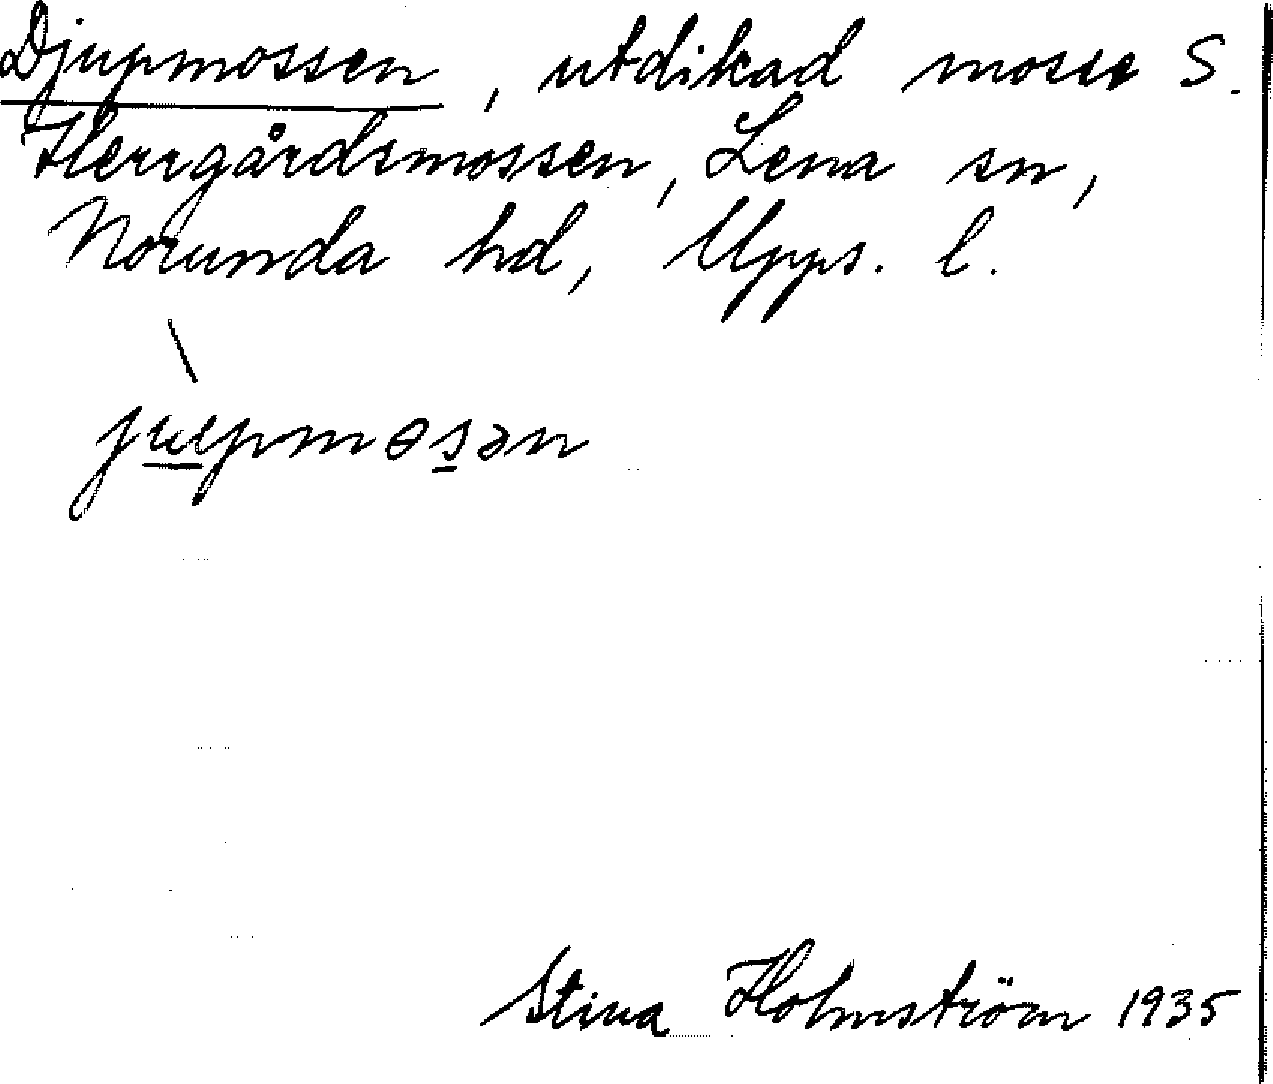 Djupmossen, utdikad mosse S.
Herrgårdsmossen, Lena sn,
Norunda hd, Upps. l.
\
jʉpmɵsən
Stina Holmström 1935